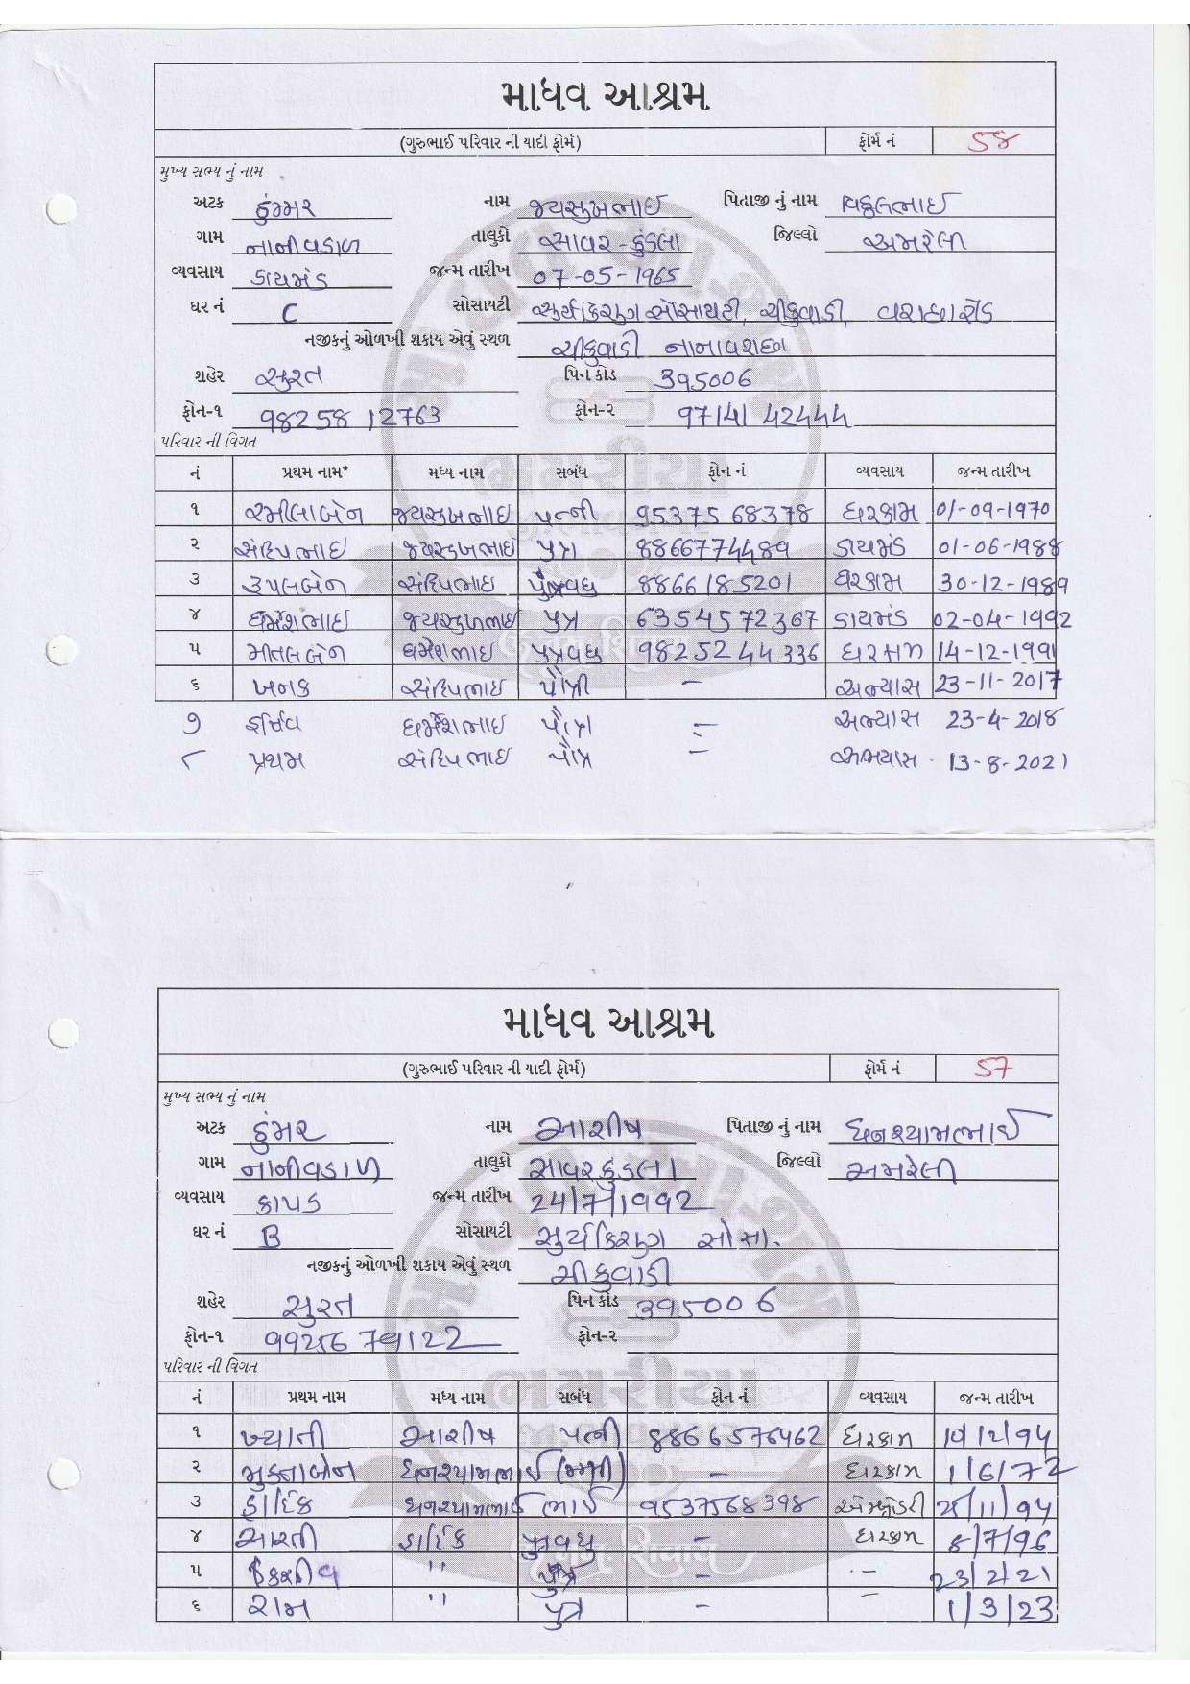 માધવ આશ્રમ
(ગુરુભાઈ પરિવાર ની યાદી ફોર્મ) ફોર્મ નં ૫૮
મુખ્ય સભ્ય નું નામ
અટક ડુંમર નામ જયસુખભાઈ પિતાજી નું નામ વિઠ્ઠલભાઈ
ગામ નાનીવડાળ તાલુકો સાવર-કુંડલા જિલ્લો અમરેલી
વ્યવસાય ડાયમંડ જન્મ તારીખ 07-05-1965
ઘર નં C સોસાયટી સુર્યકિરણ સોસાયટી, ચીકુવાડી, વરાછારોડ
નજીકનું ઓળખી શકાય એવું સ્થળ ચીકુવાડી નાનાવરાછા
શહેર સુરત પિન કોડ 395006
ફોન-૧ 98258 12763 ફોન-૨ 97141 42444
પરિવાર ની વિગત
નં પ્રથમ નામ મધ્ય નામ સબંધ ફોન નં વ્યવસાય જન્મ તારીખ
૧ રમીલાબેન જયસુખભાઇ પત્ની 95375 68378 ઘરકામ 01-09-1970
૨ સંદિપભાઇ જયસુખભાઇ પુત્ર 8866774489 ડાયમંડ 01-06-1988
૩ રૂપલબેન સંદિપભાઇ પુત્રવધુ 8866185201 ઘરકામ 30-12-1989
૪ ધર્મેશભાઇ જયસુખભાઇ પુત્ર 6354572367 ડાયમંડ 02-04-1992
૫ મીતલબેન ધર્મેશભાઇ પુત્રવધુ 9825244336 ઘરકામ 14-12-1991
૬ ખનક સંદિપભાઇ પૌત્રી - અભ્યાસ 23-11-2017
૭ ધર્મેશભાઇ પૌત્ર - અભ્યાસ 23-4-2018
૮ પ્રથમ સંદિપભાઇ પૌત્ર - અભ્યાસ - 13-8-2021
માધવ આશ્રમ
(ગુરુભાઈ પરિવાર ની યાદી ફોર્મ) ફોર્મ નં ૫7
મુખ્ય સભ્ય નું નામ
અટક ડુંમર નામ આશીષ પિતાજી નું નામ ઘનશ્યામભાઈ
ગામ નાનીવડાળ તાલુકો સાવરકુંડલા જિલ્લો અમરેલી
વ્યવસાય કાપડ જન્મ તારીખ 24/7/1992
ઘર નં B સોસાયટી સુર્યકિરણ સોસા.
નજીકનું ઓળખી શકાય એવું સ્થળ ચીકુવાડી
શહેર સુરત પિન કોડ 395006
ફોન-૧ 99256 79122 ફોન-૨
પરિવાર ની વિગત
નં પ્રથમ નામ મધ્ય નામ સબંધ ફોન નં વ્યવસાય જન્મ તારીખ
૧ ખ્યાતી આશીષ પત્ની 8866576462 ઘરકામ
૨ મુક્તાબેન ઘનશ્યામભાઈ (મમ્મી) - ઘરકામ 1/6/72
૩ હાર્દિક ઘનશ્યામભાઈ ભાઈ 9537568398 એમ્બ્રોડરી 25/11/94
૪ આરતી હાર્દિક પુત્રવધુ - ઘરકામ 8/7/96
૫ '' પુત્ર - - 23/2/21
૬ રામ '' પુત્ર - 1/3/23